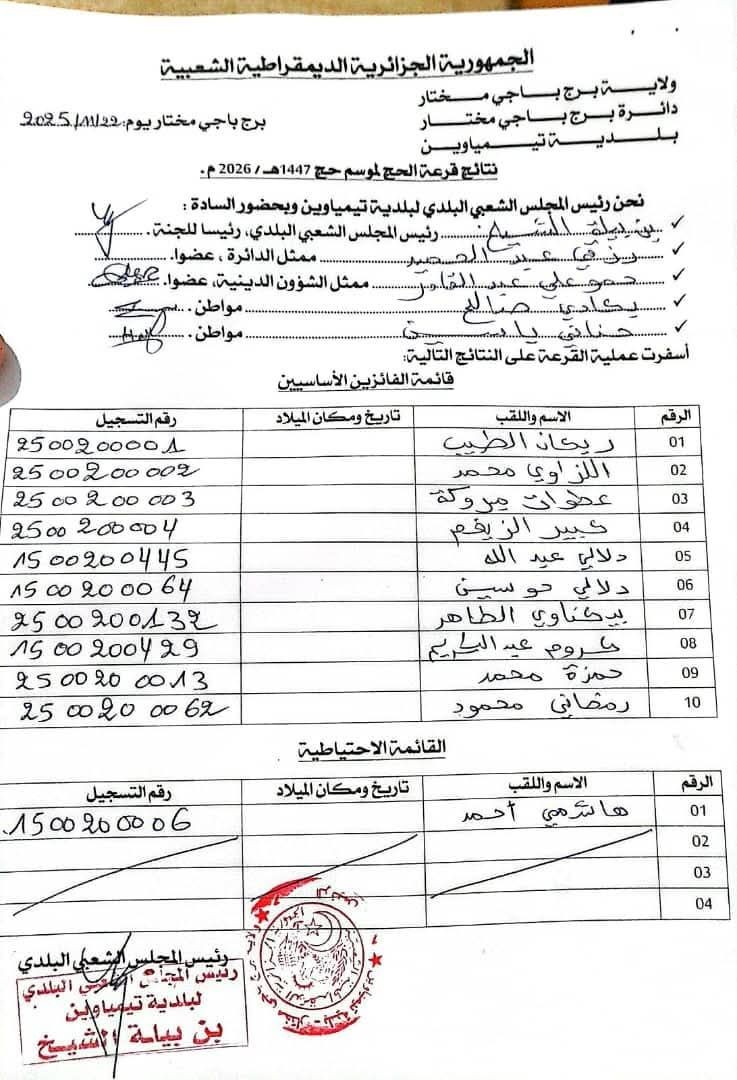 الجمهورية الجزائرية الديمقراطية الشعبية
ولايـــة برج بــــاجي مختــــار
دائــرة برج بــــاجي مختــــار
بـــلديـــة تيــميـــاوين
برج باجي مختار يوم: 2025/11/22
نتائج قرعة الحج لموسم حج 1447هـ/ 2026 م.
نحن رئيس المجلس الشعبي البلدي لبلدية تيمياوين وبحضور السادة :
✓ بن بيلة الشيخ رئيس المجلس الشعبي البلدي، رئيسا للجنة.
✓ رزقي عبد الصمد ممثل الدائرة ، عضوا.
✓ حمو علي عبد القادر ممثل الشؤون الدينية، عضوا.
✓ يكادي صالح مواطن.
✓ حناني ياسين مواطن.
أسفرت عملية القرعة على النتائج التالية:
قائمة الفائزين الأساسيين
الرقم الاسم واللقب تاريخ ومكان الميلاد رقم التسجيل
01 ريكان الطيب 25002000001
02 اللزاوي محمد 2500200002
03 عطوات مبروكة 2500200003
04 كبير الزيغم 2500200004
05 دلالي عبد الله 1500200445
06 دلالي حوسين 1500200064
07 بيكناوي الطاهر 2500200132
08 كروم عبد الكريم 1500200429
09 حمزة محمد 2500200013
10 رمضاني محمود 2500200062
القائمة الاحتياطية
الرقم الاسم واللقب تاريخ ومكان الميلاد رقم التسجيل
01 هاشمي أحمد 1500200006
02
03
04
رئيس المجلس الشعبي البلدي
رئيس المجلس الشعبي البلدي
لبلدية تيمياوين
بن بيلة الشيخ